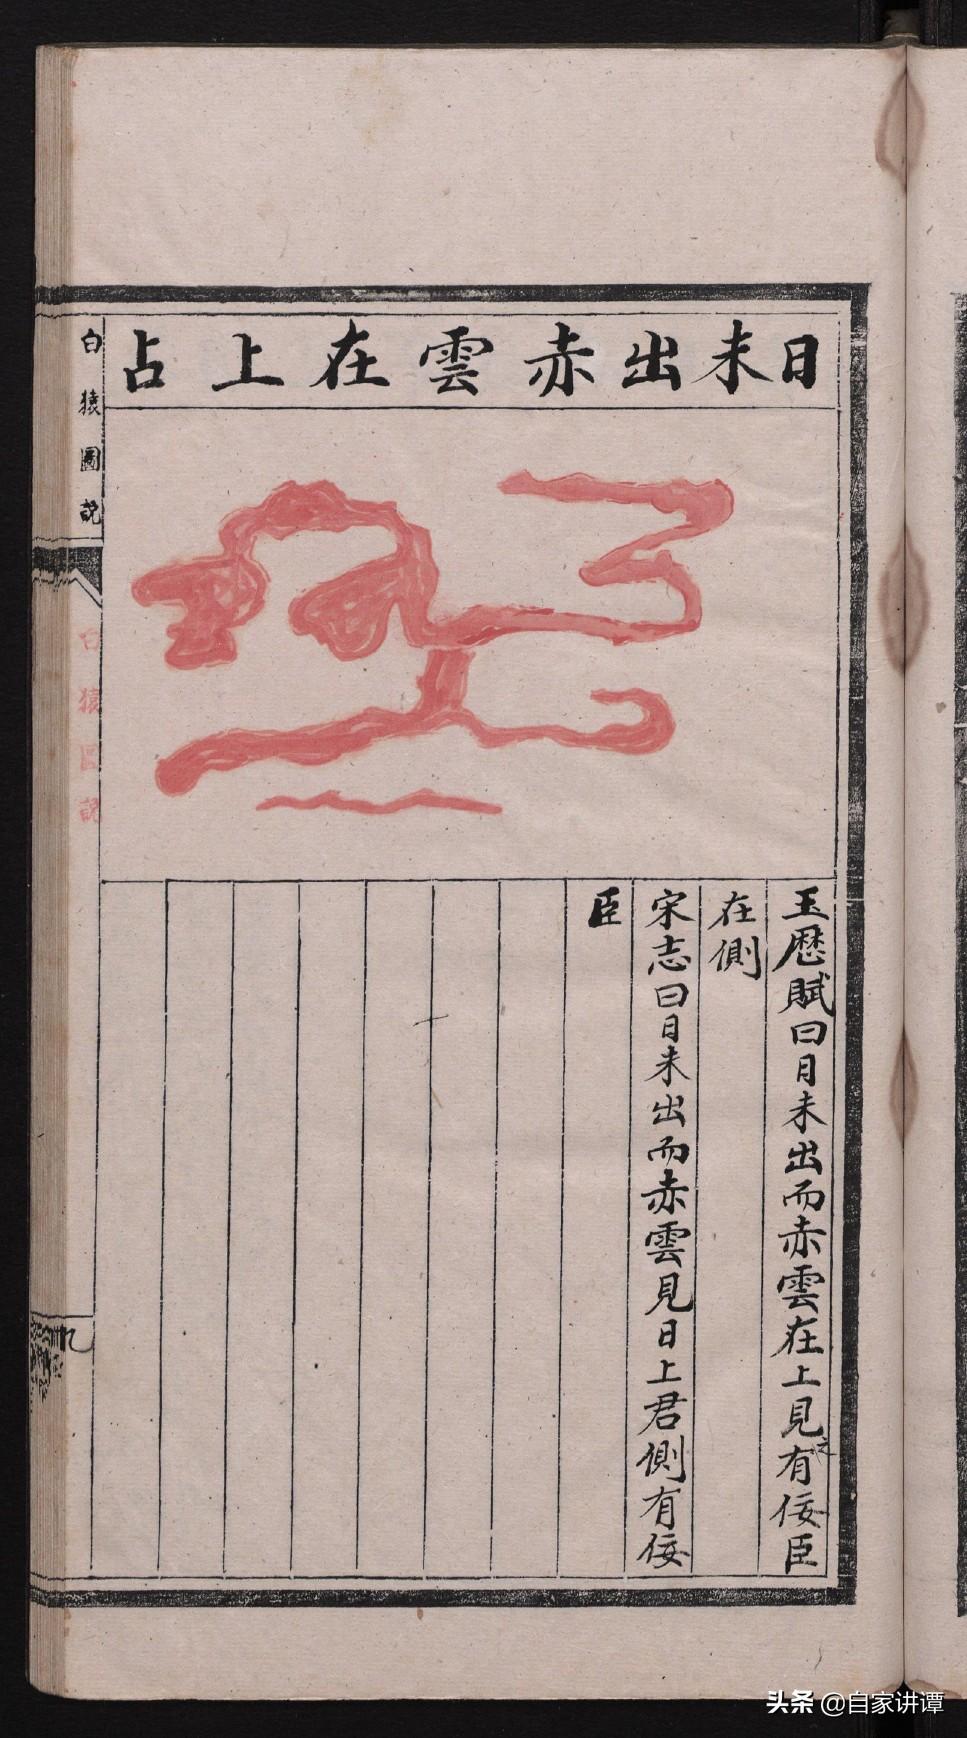 日未出赤雲在上占
玉歴賦曰日未出而赤雲在上見之有佞臣
在側
宋志曰日未出而赤雲見日上君側有佞
臣
白猿圖説
白猿圖説
九
头条 @自家讲谭